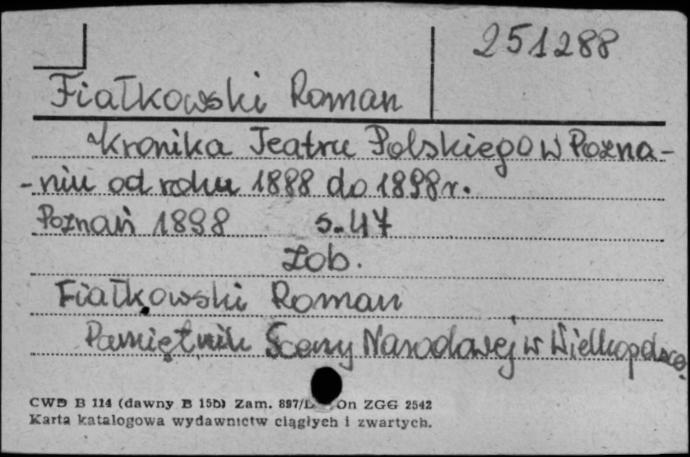 251288
Fiałkowski Roman
Kronika Teatru Polskiego w Pozna-
-niu od roku 1888 do 1898 r.
Poznań 1898 s. 47
Zob.
Fiałkowski Roman
Pamiętnik Sceny Narodowej w Wielkopolsce
CWD B 114 (dawny B 15b) Zam. 897/ On ZGG 2542
Karta katalogowa wydawnictw ciągłych i zwartych.